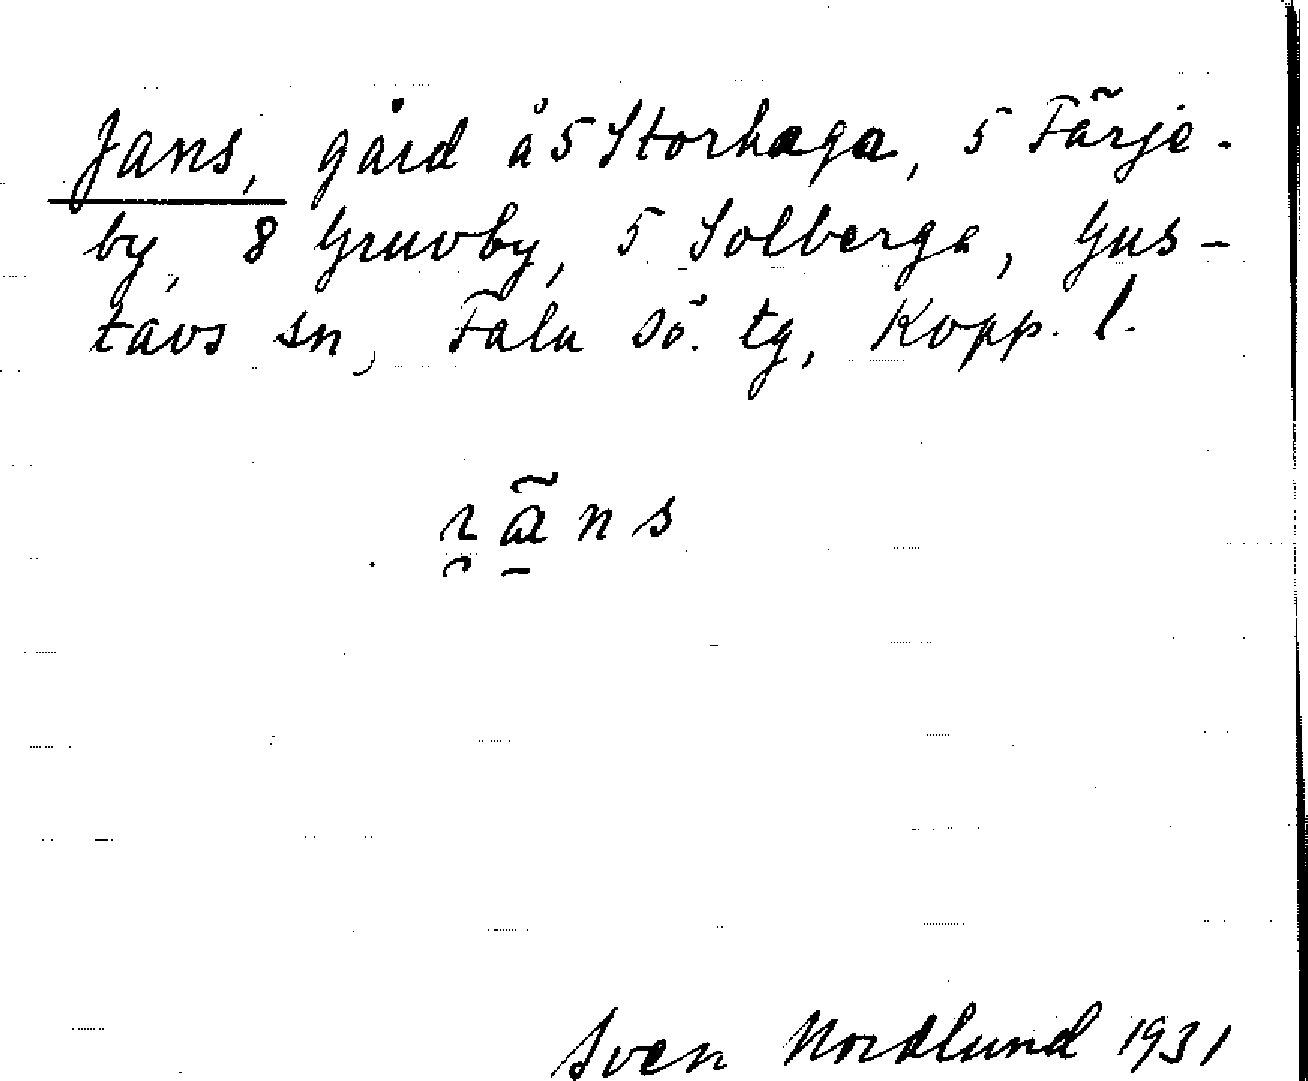 Jans, gård å 5 Storhaga, 5 Färje-
by, 8 Gruvby, 5 Solberga, Gus-
tavs sn, Falu Sö. tg, Kopp. l.
Sven Nordlund 1931